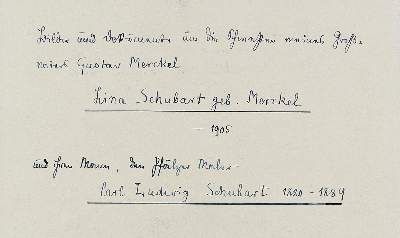 Bilder und Dokumente um die Schwester meines Groß-
vaters Gustav Merckel
Lina Schubart geb. Merckel
1905
und ihren Mann, den Pfälzer Maler
Carl Ludwig Schubart 1820 - 1889